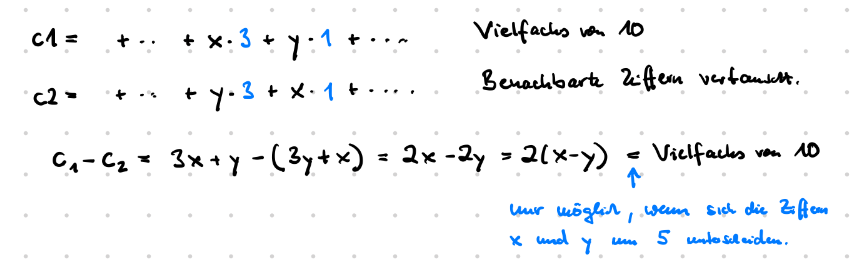 c1 = + .. + x · 3 + y · 1 + .... Vielfaches von 10
c2 = + .. + y · 3 + x · 1 + .... Benachbarte Ziffern vertauscht.
C₁ - C₂ = 3x + y - (3y + x) = 2x - 2y = 2(x-y) = Vielfaches von 10
↑
nur möglich, wenn sich die Ziffern
x und y um 5 unterscheiden.